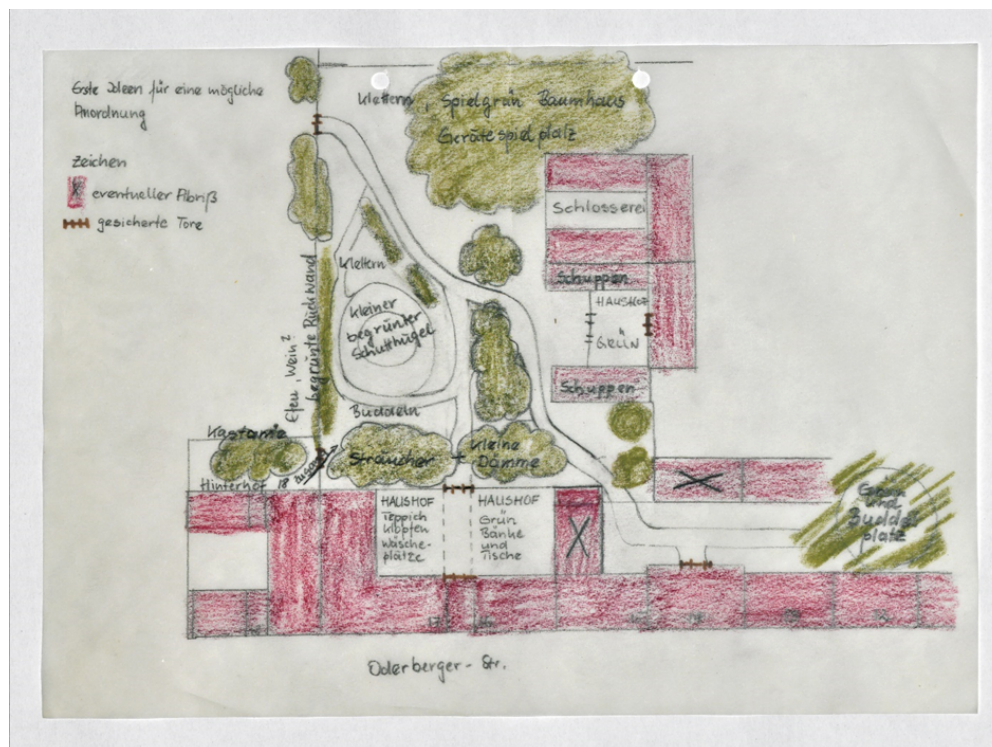 Erste Ideen für eine mögliche
Anordnung
Zeichen
eventueller Abriß
gesicherte Tore
Klettern, Spielgrün Baumhaus
Gerätespielplatz
Schlosserei
Schuppen
HAUSHOF
GRÜN
Schuppen
Klettern
Kleiner
begrünter
Schutthügel
Efeu, Wein?
begrünte Rückwand
Buddeln
Kastanie
Sträucher +
Kleine
Dämme
Hinterhof 18
Zugang
HAUSHOF
Teppich
klopfen
Wäsche-
plätze
HAUSHOF
Grün
Bänke
und
Tische
Grün
und
Buddel
platz
Oderberger-Str.